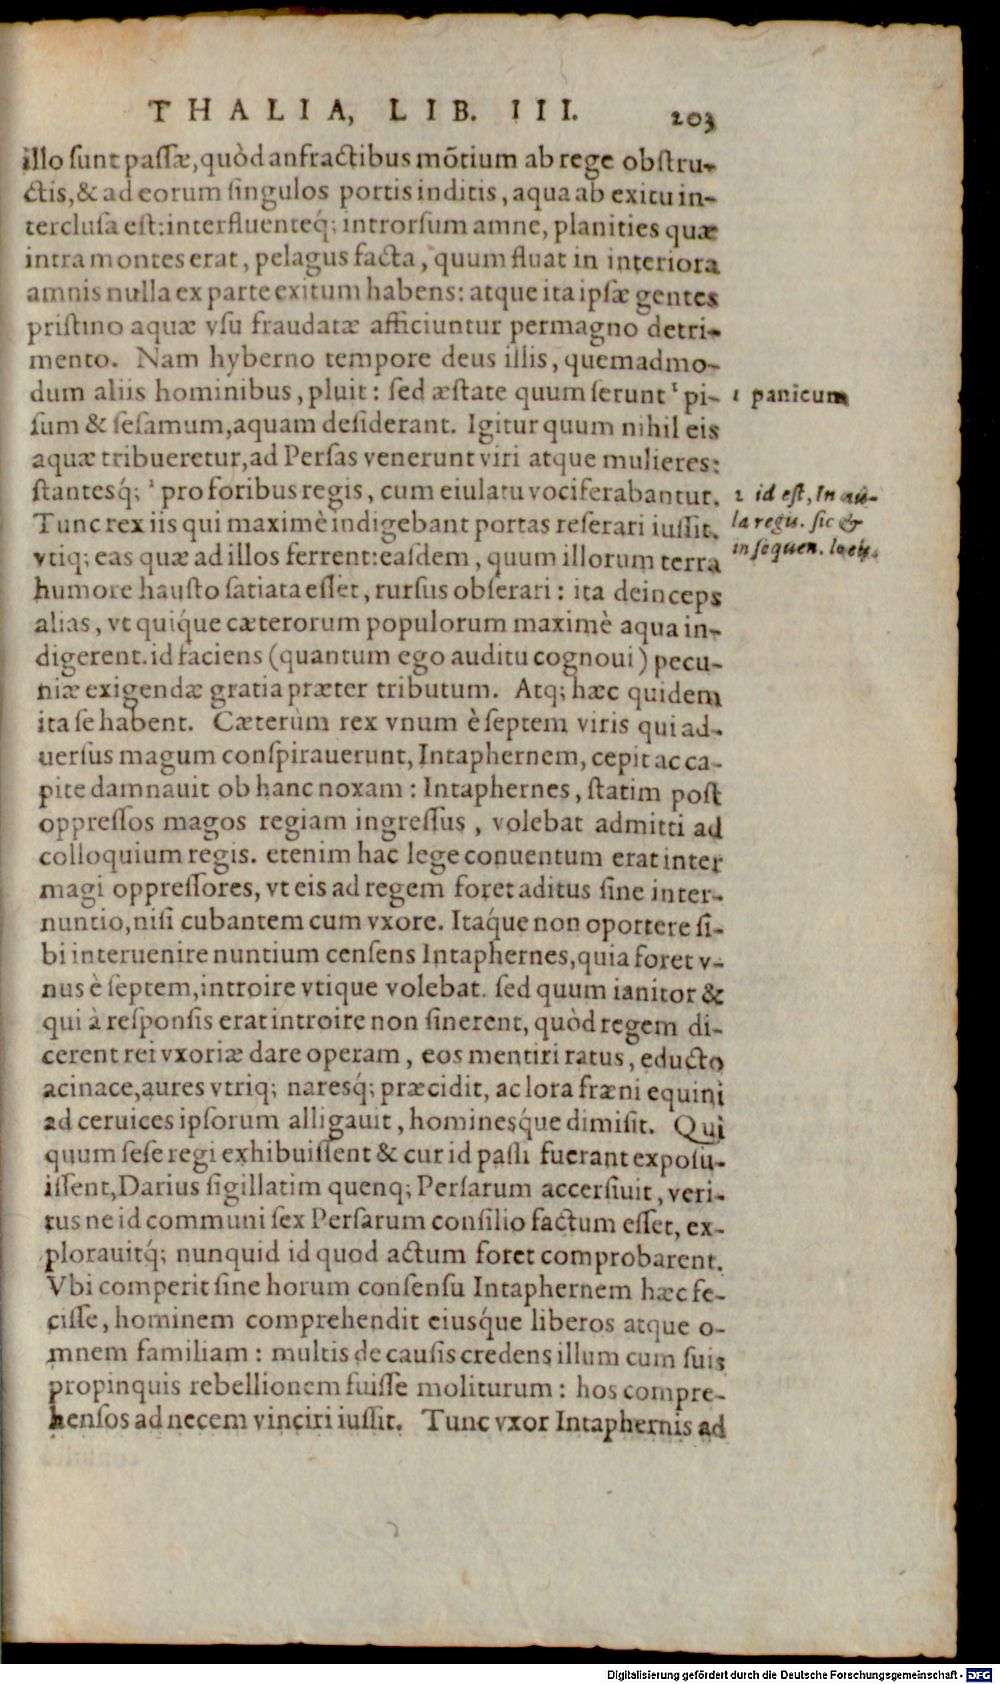 THALIA, LIB. III. 203
illo sunt passæ, quòd anfractibus mõtium ab rege obstru-
ctis, & ad eorum singulos portis inditis, aqua ab exitu in-
terclusa est: interfluenteq́; introrsum amne, planities quæ
intra montes erat, pelagus facta, quum fluat in interiora
amnis nulla ex parte exitum habens: atque ita ipsæ gentes
pristino aquæ vsu fraudatæ afficiuntur permagno detri-
mento. Nam hyberno tempore deus illis, quemadmo-
dum aliis hominibus, pluit: sed æstate quum serunt ¹ pi-
sum & sesamum, aquam desiderant. Igitur quum nihil eis
aquæ tribueretur, ad Persas venerunt viri atque mulieres:
stantesq́; ² pro foribus regis, cum eiulatu vociferabantur.
Tunc rex iis qui maximè indigebant portas reserari iussit.
vtiq; eas quæ ad illos ferrent: easdem, quum illorum terra
humore hausto satiata esset, rursus obserari: ita deinceps
alias, vt quíque cæterorum populorum maximè aqua in-
digerent. id faciens (quantum ego auditu cognoui) pecu-
niæ exigendæ gratia præter tributum. Atq; hæc quidem
ita se habent. Cæterùm rex vnum è septem viris qui ad-
uersus magum conspirauerunt, Intaphernem, cepit ac ca-
pite damnauit ob hanc noxam: Intaphernes, statim post
oppressos magos regiam ingressus, volebat admitti ad
colloquium regis. etenim hac lege conuentum erat inter
magi oppressores, vt eis ad regem foret aditus sine inter-
nuntio, nisi cubantem cum vxore. Itáque non oportere si-
bi interuenire nuntium censens Intaphernes, quia foret v-
nus è septem, introire vtique volebat. sed quum ianitor &
qui à responsis erat introire non sinerent, quòd regem di-
cerent rei vxoriæ dare operam, eos mentiri ratus, educto
acinace, aures vtriq; naresq́; præcidit, ac lora fræni equini
ad ceruices ipsorum alligauit, hominesq́ue dimisit. Qui
quum sese regi exhibuissent & cur id passi fuerant exposu-
issent, Darius sigillatim quenq; Persarum accersiuit, veri-
tus ne id communi sex Persarum consilio factum esset, ex-
plorauitq́; nunquid id quod actum foret comprobarent.
Vbi comperit sine horum consensu Intaphernem hæc fe-
cisse, hominem comprehendit eiusq́ue liberos atque o-
mnem familiam: multis de causis credens illum cum suis
propinquis rebellionem fuisse moliturum: hos compre-
hensos ad necem vinciri iussit. Tunc vxor Intaphernis ad
1 panicum
2 id est, In au-
la regis. sic &
in sequen. locis.
Digitalisierung gefördert durch die Deutsche Forschungsgemeinschaft - DFG